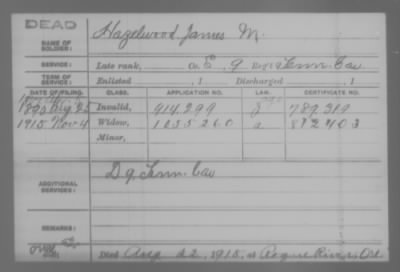 DEAD
NAME OF SOLDIER: Hazelwood, James M.
SERVICE: Late rank, Co. E, 9 Reg't Tenn. Cav
TERM OF SERVICE: Enlisted , 1 Discharged , 1
DATE OF FILING. CLASS. APPLICATION NO. LAW. CERTIFICATE NO.
Aug 25 Invalid, 914.299 789.319
1915 Nov 4 Widow, 1055260 812403
Minor,
ADDITIONAL SERVICES: D 9 Tenn. Cav
REMARKS:
Died Aug 22, 1915, at Rogue River, Ore